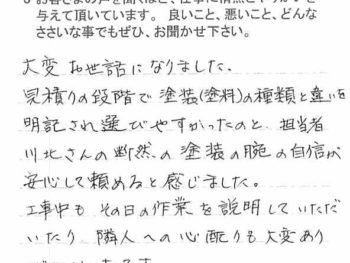 お客さまの声を聞くほど、仕事に情熱とやりがいを
与えて頂いています。 良いこと、悪いこと、どんな
ささいな事でもぜひ、お聞かせ下さい。
大変お世話になりました。
見積りの段階で塗装(塗料)の種類と違いを
明記され選びやすかったのと、担当者
川北さんの断然の塗装の腕の自信が
安心して頼めると感じました。
工事中も その日の作業を説明していただ
いたり 隣人への心配りも大変あり